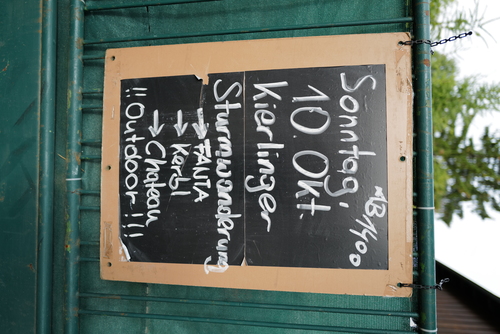 Sonntag,
AB 1400
10 Okt.
Kierlinger
Sturmwanderung
→ TANTA
→ Kerbl
→ Chateau
!!Outdoor!!!